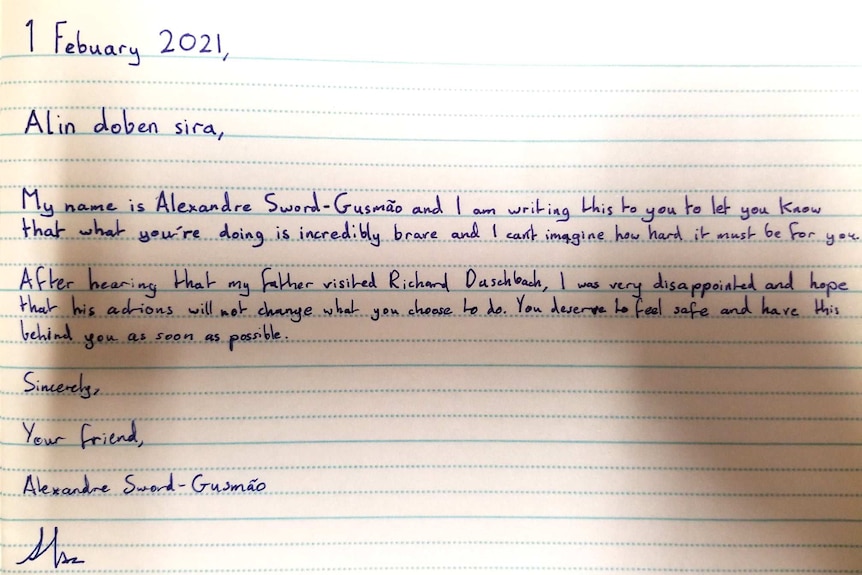 1 Febuary 2021,
Alin doben sira,
My name is Alexandre Sword-Gusmão and I am writing this to you to let you know
that what you're doing is incredibly brave and I cant imagine how hard it must be for you.
After hearing that my father visited Richard Daschbach, I was very disappointed and hope
that his actions will not change what you choose to do. You deserve to feel safe and have this
behind you as soon as possible.
Sincerely,
Your friend,
Alexandre Sword-Gusmão